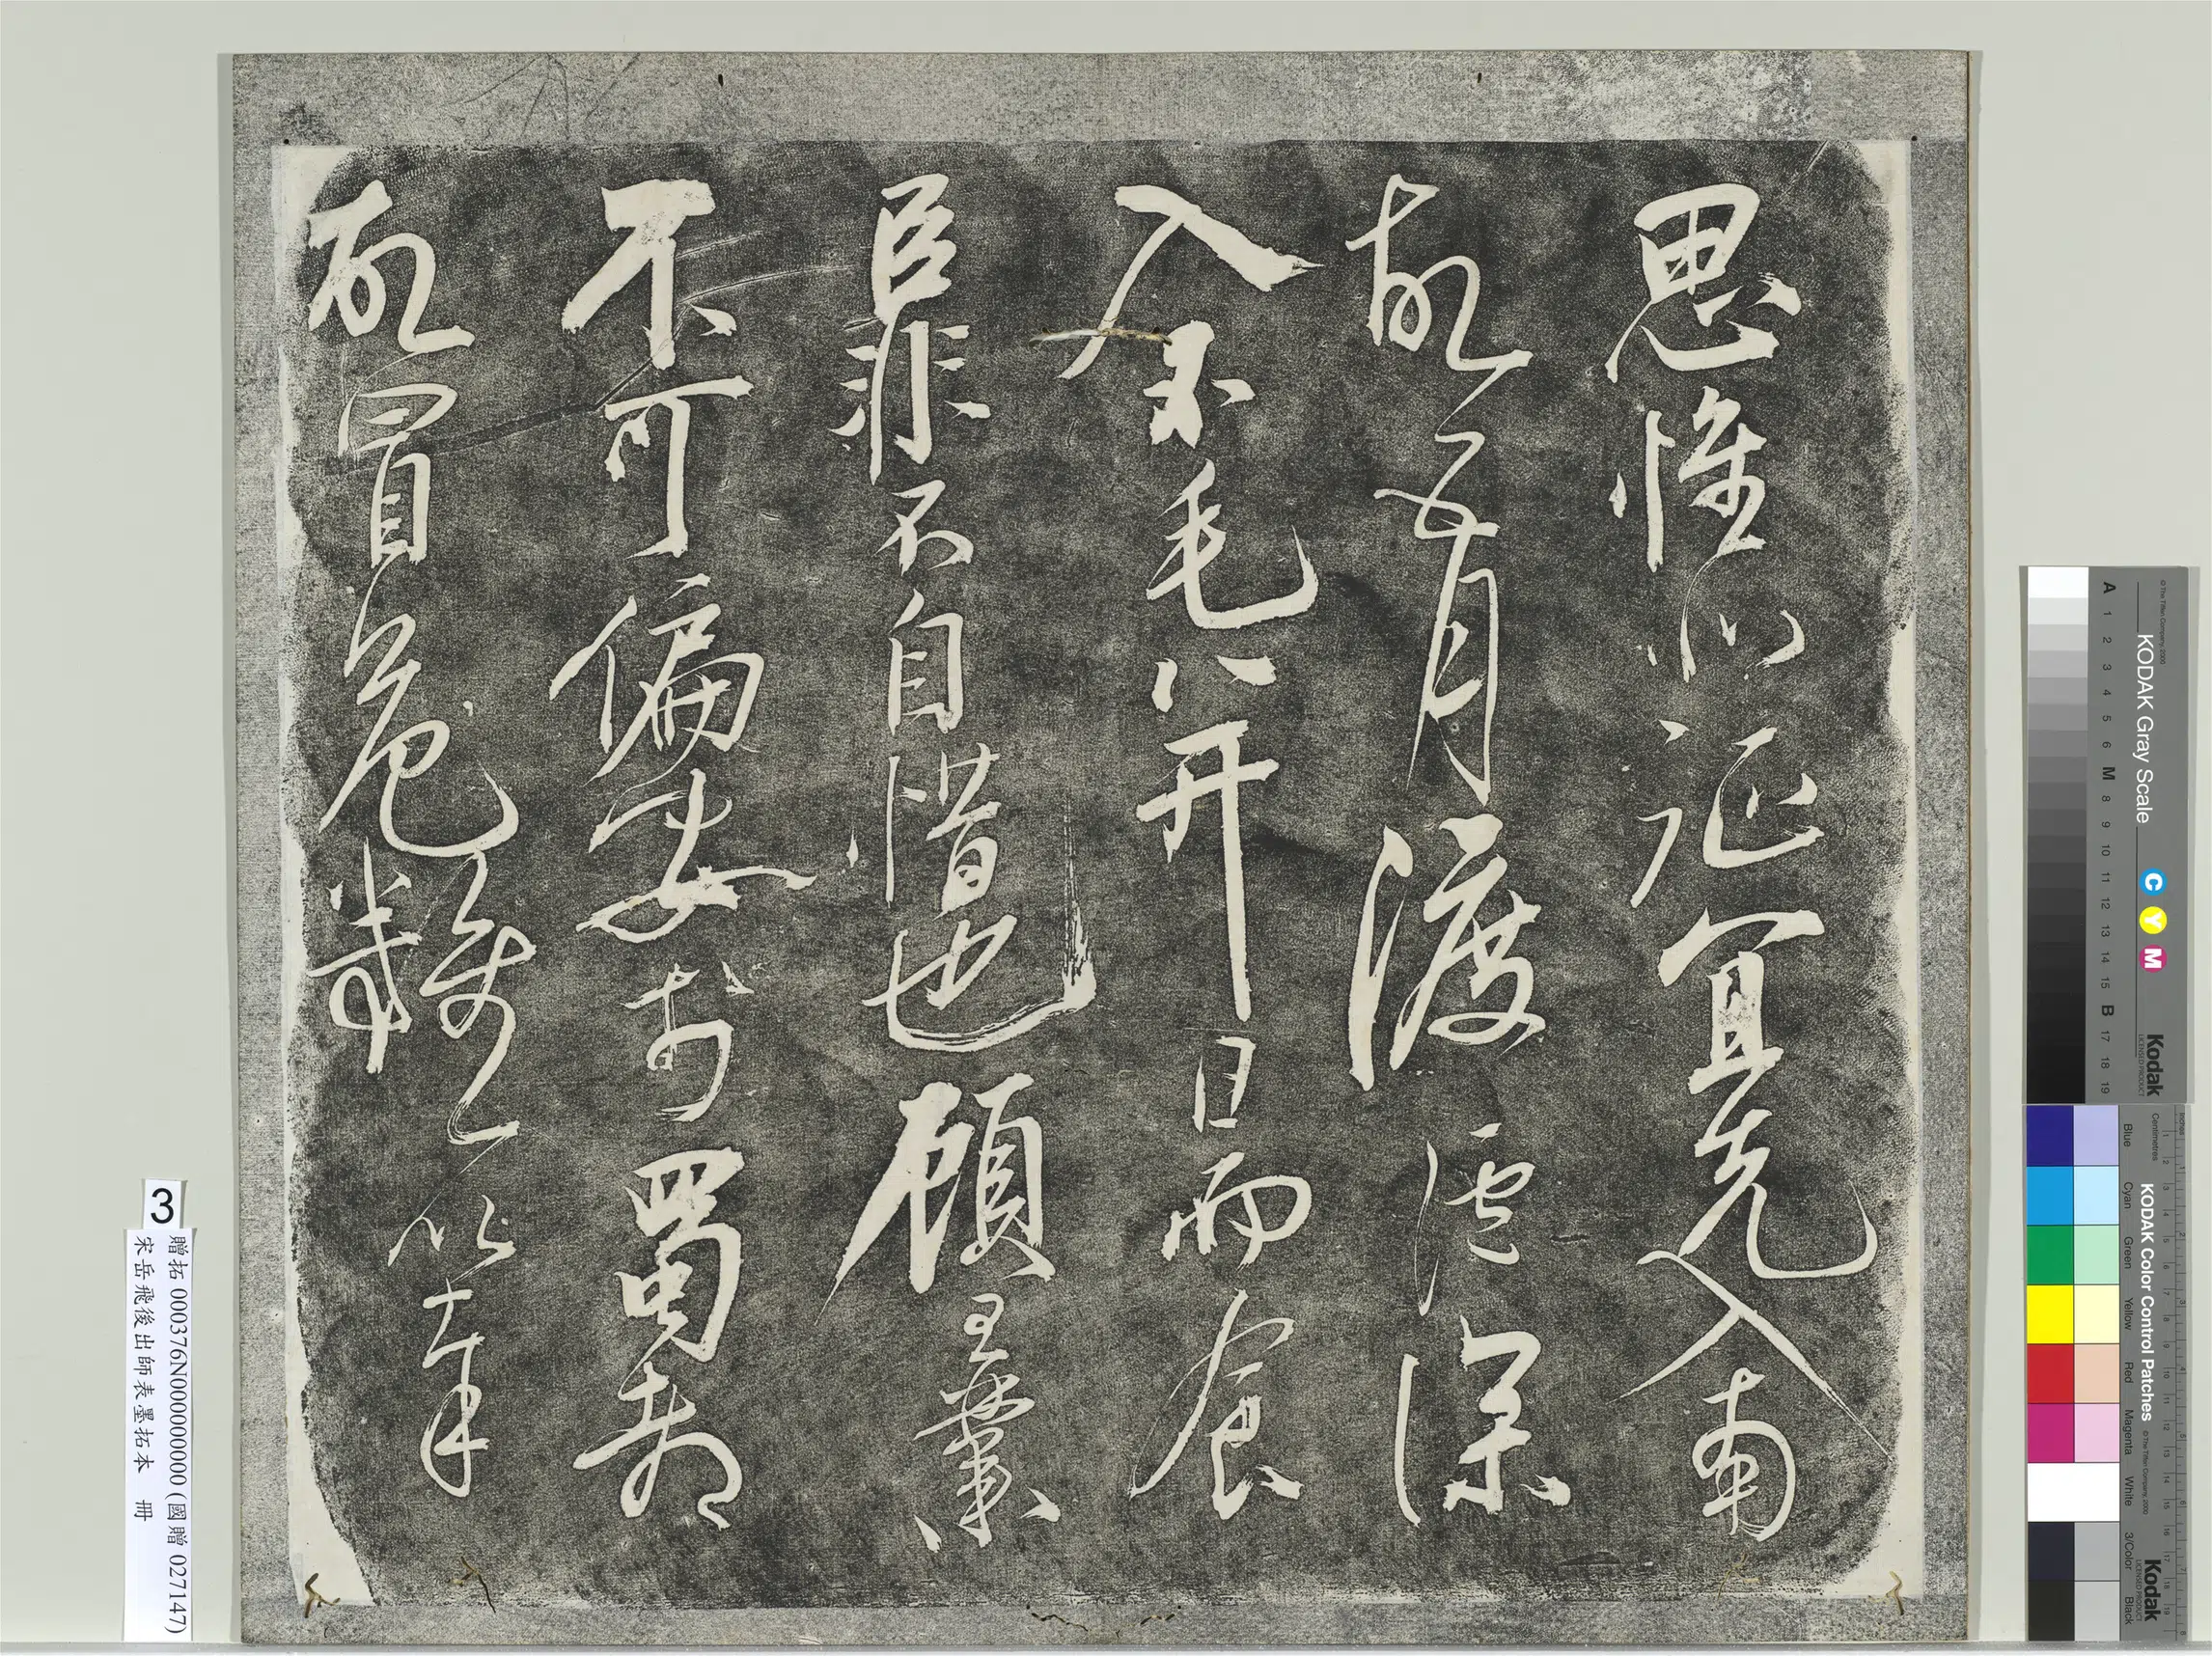 思惟北征宜先入南
故五月渡瀘深
入不毛并日而食
臣非不自惜也顧王業
不可偏安於蜀都
故冒危難以奉
3
贈拓 000376N000000000 (國贈 027147)
宋岳飛後出師表墨拓本 冊
KODAK Gray Scale
C Y M
Kodak
LICENSED PRODUCT
© The Tiffen Company, 2000
A 1 2 3 4 5 6 M 8 9 10 11 12 13 14 15 B 17 18 19
KODAK Color Control Patches
© The Tiffen Company, 2000
Kodak
LICENSED PRODUCT
Blue Cyan Green Yellow Red Magenta White 3/Color Black
Inches
Centimetres